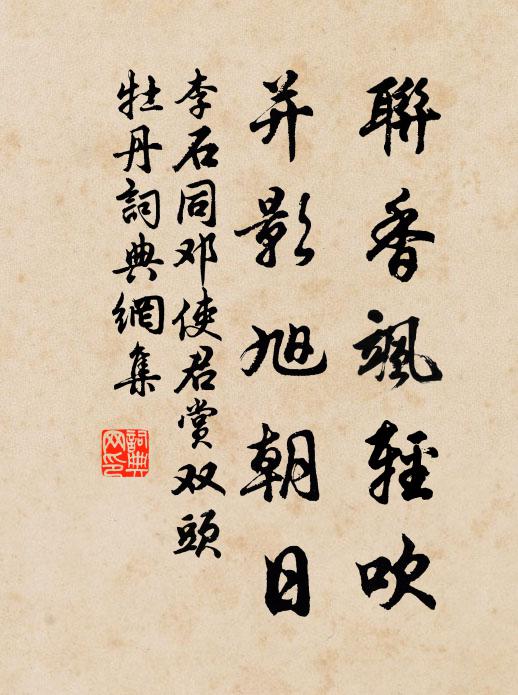 聯香颯輕吹
并影旭朝日
李石同邓使君賞双頭
牡丹詞典網集
詞典网印